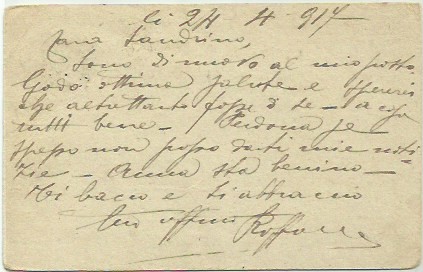 li 24 4 917
Caro Sandrino,
Sono di nuovo al mio posto
Godo ottima salute e spererei
che altrettanto fosse di te - a casa
tutti bene - Perdona se
spesso non posso darti mie noti-
zie - Anna sta benino -
Ti bacio e ti abbraccio
tuo